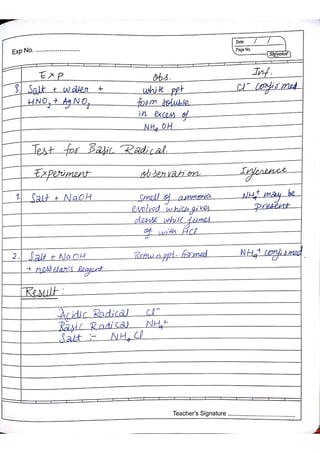 Date / /
Page No.
Signator
Exp No. ..........................
Exp Obs. Inf.
3. Salt + water + white ppt Cl⁻ confirmed
HNO₃ + AgNO₃ form soluble
in excess of
NH₄OH
Test for Basic Radical.
Experiment observation Inference
1. Salt + NaOH Smell of ammonia NH₄⁺ may be
evolved which gives present
dense white fumes
of with HCl
2. Salt + NaOH Brown ppt. formed NH₄⁺ confirmed
+ nesslar's Reagent
Result :
Acidic Radical Cl⁻
Basic Radical NH₄⁺
Salt :- NH₄Cl
Teacher's Signature ..........................